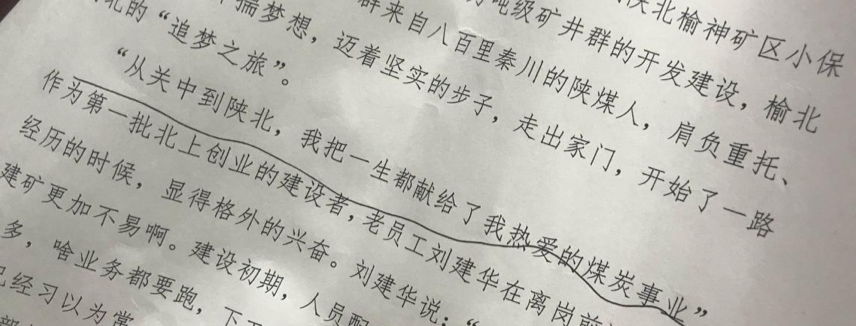 陕北榆神矿区小保
吨级矿井群的开发建设，榆北
群来自八百里秦川的陕煤人，肩负重托、
梦想，迈着坚实的步子，走出家门，开始了一路
北的“追梦之旅”。
“从关中到陕北，我把一生都献给了我热爱的煤炭事业”
作为第一批北上创业的建设者，老员工刘建华在离岗前
经历的时候，显得格外的兴奋。刘建华说：“
建矿更加不易啊。建设初期，人员配
多，啥业务都要跑，下
已经习以为常